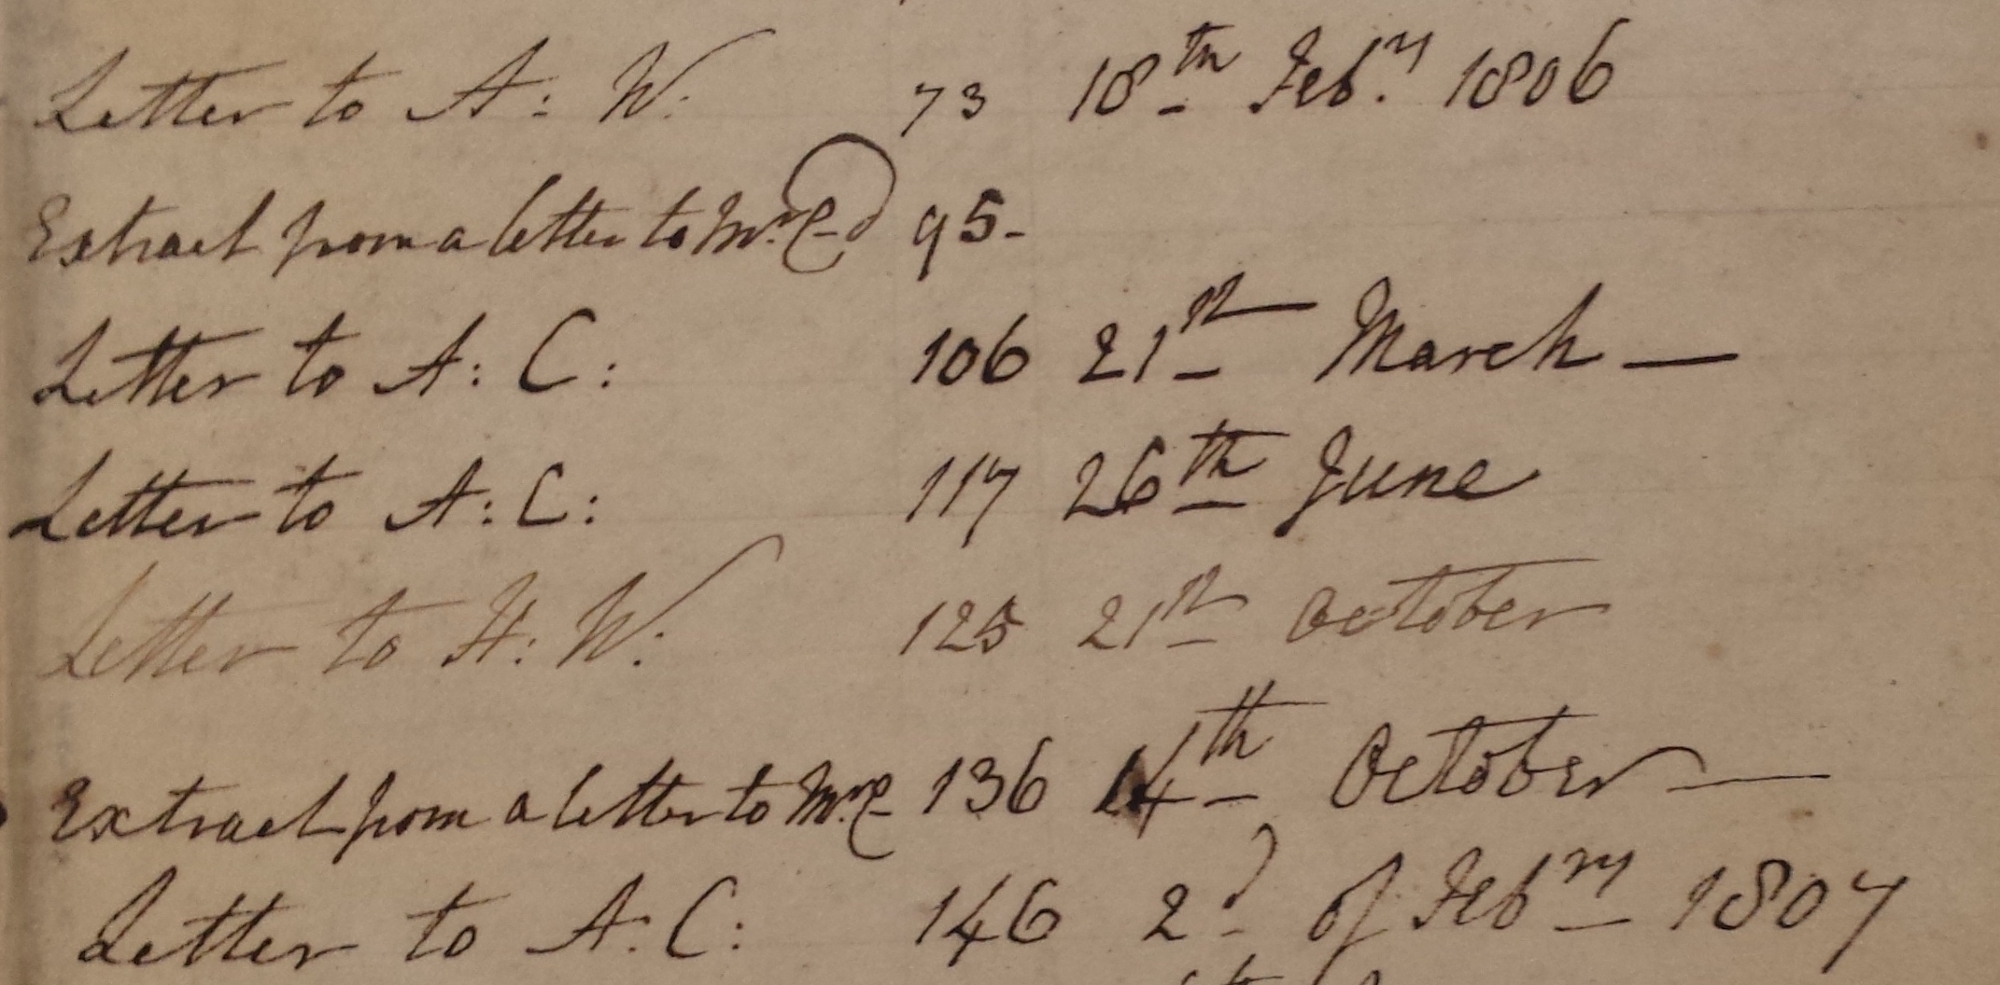 Letter to A: W: 73 18th Feb.ry 1806
Extract from a letter to Mrs C 95-
Letter to A: C: 106 21st March —
Letter to A: C: 117 26th June
Letter to H: W: 125 21st October
Extract from a letter to Mrs C 136 14th October —
Letter to A: C: 146 2d of Febry 1807